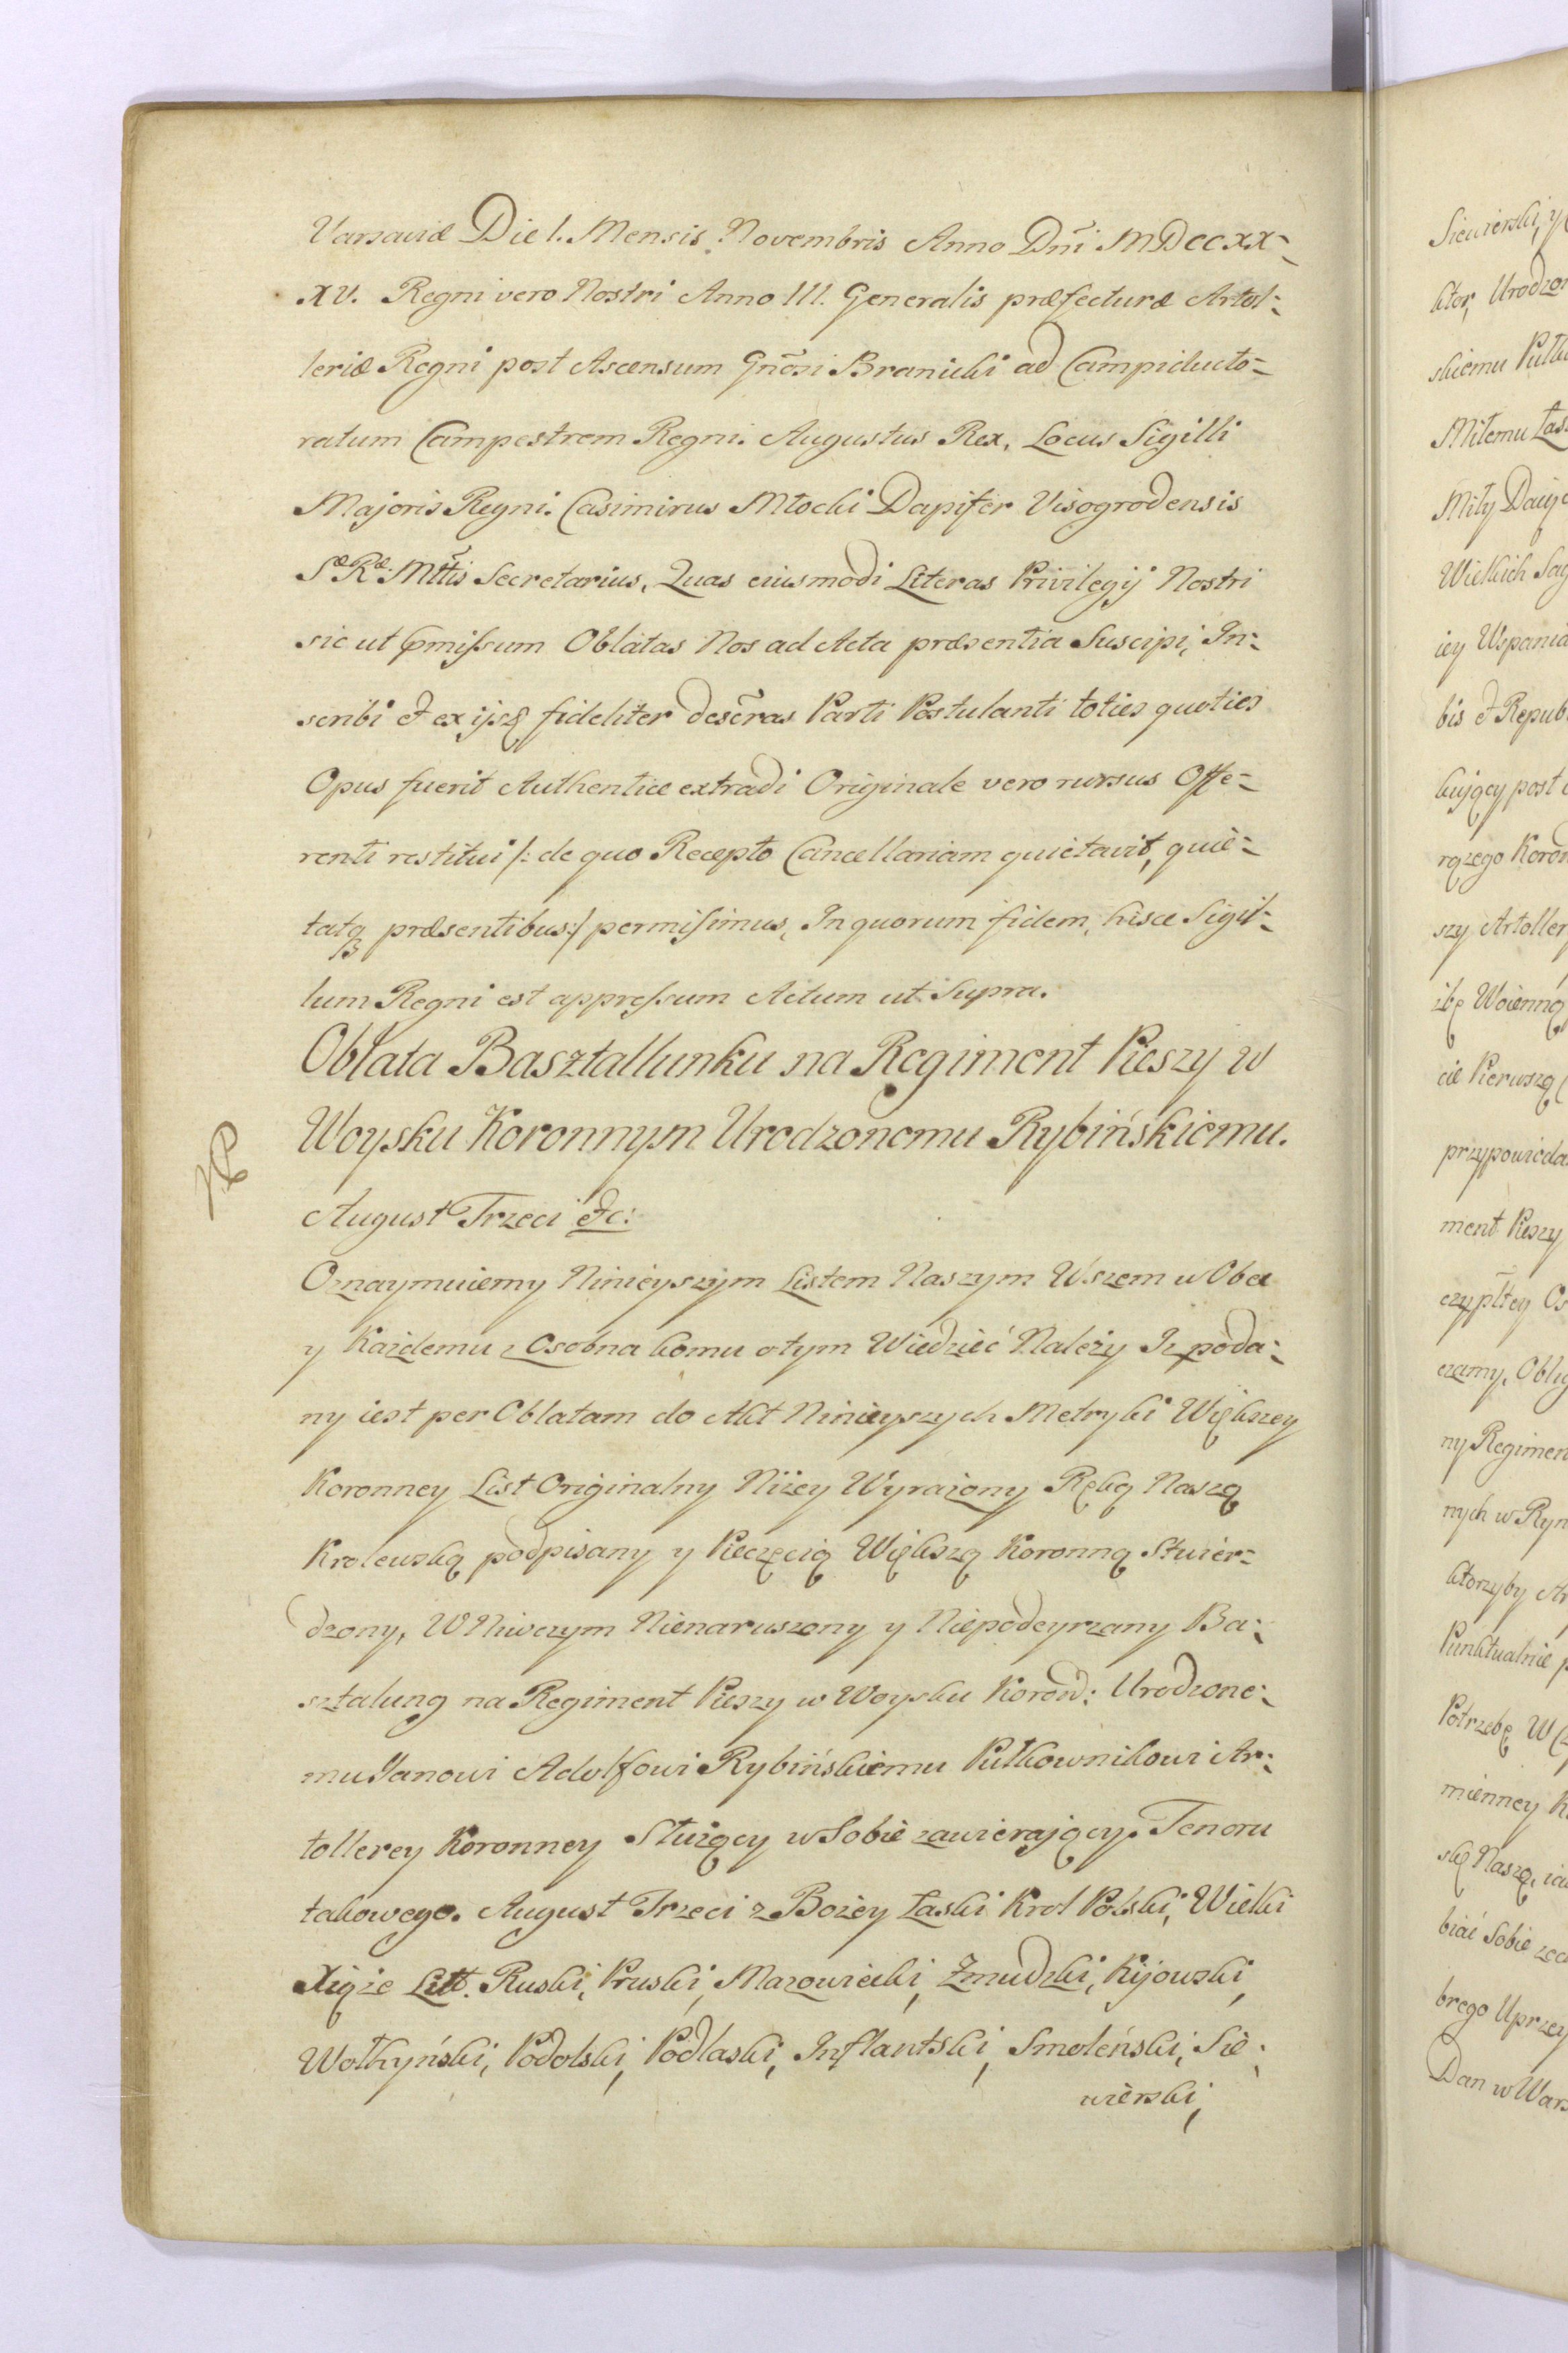 Varsaviæ Die 1. Mensis Novembris Anno Dñi MDCCXX-
XV. Regni vero Nostri Anno III. Generalis præfecturæ Artol-
leriæ Regni post Ascensum Gñosi Branicki ad Campiducto-
ratum Campestrem Regni. Augustus Rex, Locus Sigilli
Majoris Regni. Casimirus Młocki Dapifer Visogrodensis
Sæ Ræ Mttis Secretarius, Quas eiusmodi Literas Privilegij Nostri
sic ut pmissum Oblatas Nos ad Acta præsentia Suscipi, In-
scribi et ex ijsq fideliter descras Parti Postulanti toties quoties
Opus fuerit Authentice extradi Originale vero rursus Offe-
renti restitui /: de quo Recepto Cancellariam quietavit, quie-
tatq præsentibus :/ permisimus, In quorum fidem, hisce Sigil-
lum Regni est appressum Actum ut Supra.
Oblata Basztallunku na Regiment Pieszy w
Woysku Koronnym Urodzonemu Rybińskiemu.
August Trzeci etc:
Oznaymuiemy Ninieyszym Listem Naszym Wszem w Obec
y Każdemu z Osobna komu o tym Wiedzieć Należy Iż poda-
ny iest per Oblatam do Akt Ninieyszych Metryki Większey
Koronney List Originalny Niżey Wyrażony Ręką Naszą
Krolewską podpisany y Pieczęcią Większą Koronną Stwier-
dzony, W Niwczym Nienaruszony y Niepodeyrzany Ba-
sztalung na Regiment Pieszy w Woysku Koron: Urodzone-
mu Janowi Adolfowi Rybińskiemu Pułkownikowi Ar-
tollerey Koronney Służący w Sobie zawierający. Tenoru
takowego. August Trzeci z Bożey Łaski Krol Polski, Wielki
Xiąże Litt. Ruski, Pruski, Mazowiecki, Żmudzki, Kijowski,
Wołhyński, Podolski, Podlaski, Inflantski, Smoleński, Sie-
wierski,
Siewierski, y
ktor, Urodzon
skiemu Pułk
Miłemu Łas
Miły Daiąc
Wielkich
iey Wspania
bis et Repub
kujący post
rązego Koron
szy Artoller
żbę Woienną
cie Pierwszą
przypowieda
ment Pieszy
czypltey Os
czamy, Oblig
ny Regimen
nych w Ryn
ktorzyby
Punktualnie p
Potrzebę W
mienney K
skę Naszą, ia
biai Sobie
brego Uprzey
Dan w Wars